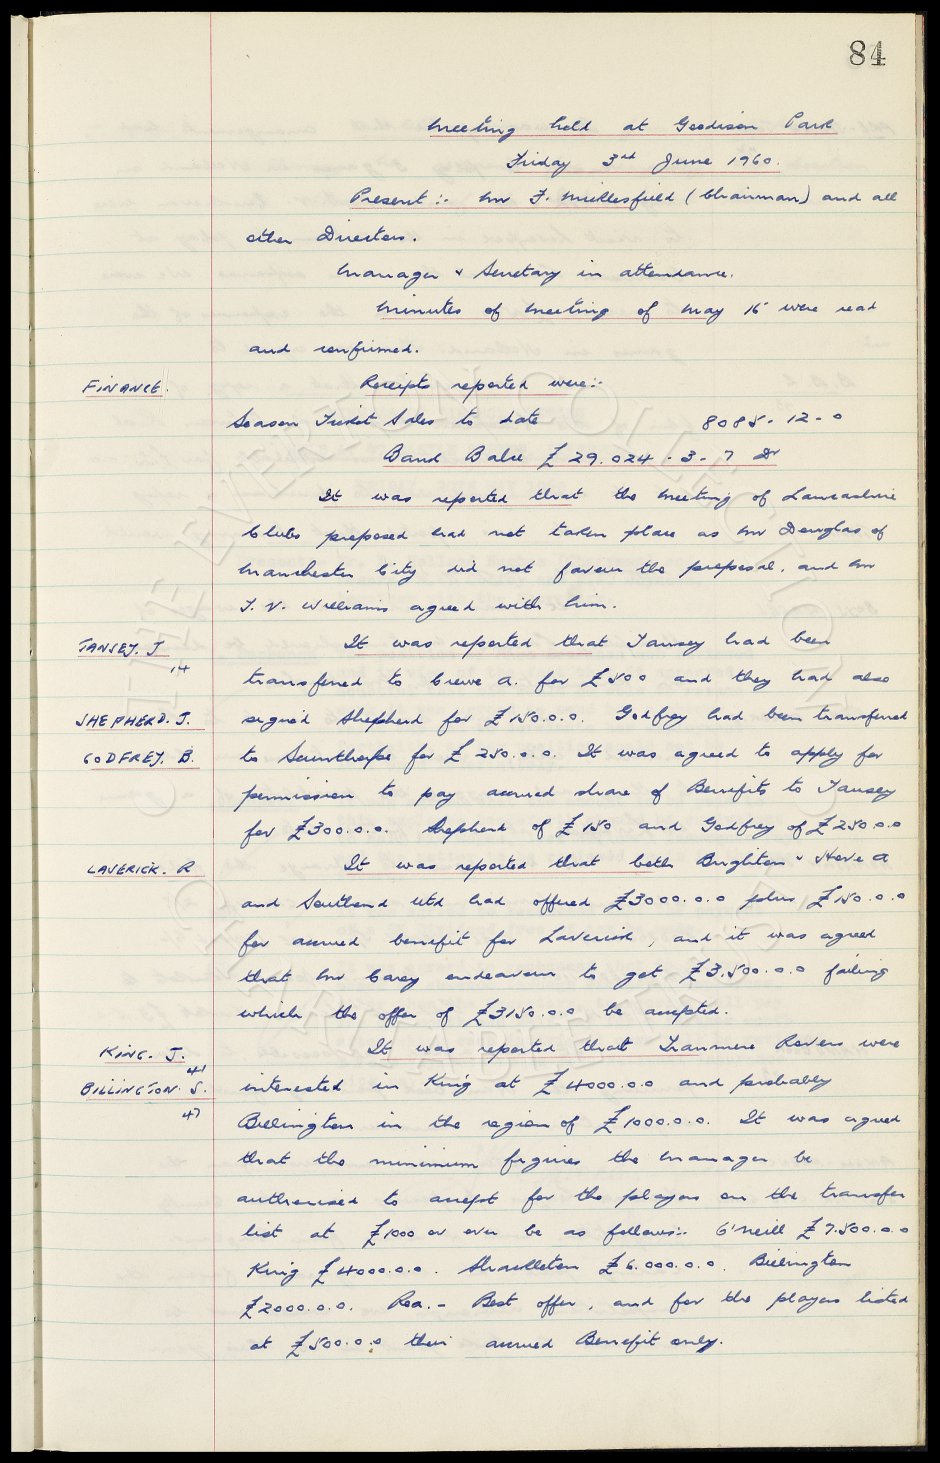 84
Meeting held at Goodison Park
Friday 3rd June 1960.
Present :- Mr F. Micklesfield (Chairman) and all
other Directors.
Manager & Secretary in attendance.
Minutes of meeting of May 16 were read
and confirmed.
FINANCE. Receipts reported were:-
Season Ticket Sales to date 8085 - 12 - 0
Bank Balce £29.024 - 3 - 7 Dr
It was reported that the meeting of Lancashire
Clubs proposed had not taken place as Mr Douglas of
Manchester City did not favour the proposal, and Mr
T. V. Williams agreed with him.
TANSEY. J It was reported that Tansey had been
14 transferred to Crewe A. for £500 and they had also
SHEPHERD. J. signed Shepherd for £150.0.0. Godfrey had been transferred
GODFREY. B. to Scunthorpe for £250.0.0. It was agreed to apply for
permission to pay accrued share of Benefits to Tansey
for £300.0.0. Shepherd of £150 and Godfrey of £250.0.0
LAVERICK. R It was reported that both Brighton & Hove A
and Southend Utd had offered £3000.0.0 plus £150.0.0
for accrued benefit for Laverick, and it was agreed
that Mr Carey endeavour to get £3.500.0.0 failing
which the offer of £3150.0.0 be accepted.
KING. J. It was reported that Tranmere Rovers were
41
BILLINGTON. S. interested in King at £4000.0.0 and probably
47 Billington in the region of £1000.0.0. It was agreed
that the minimum figures the Manager be
authorised to accept for the players on the transfer
list at £1000 or over be as follows:- O'Neill £7.500.0.0
King £4000.0.0. Shackleton £6.000.0.0. Billington
£2000.0.0. Rea. - Best offer, and for the players listed
at £500.0.0 their accrued Benefit only.